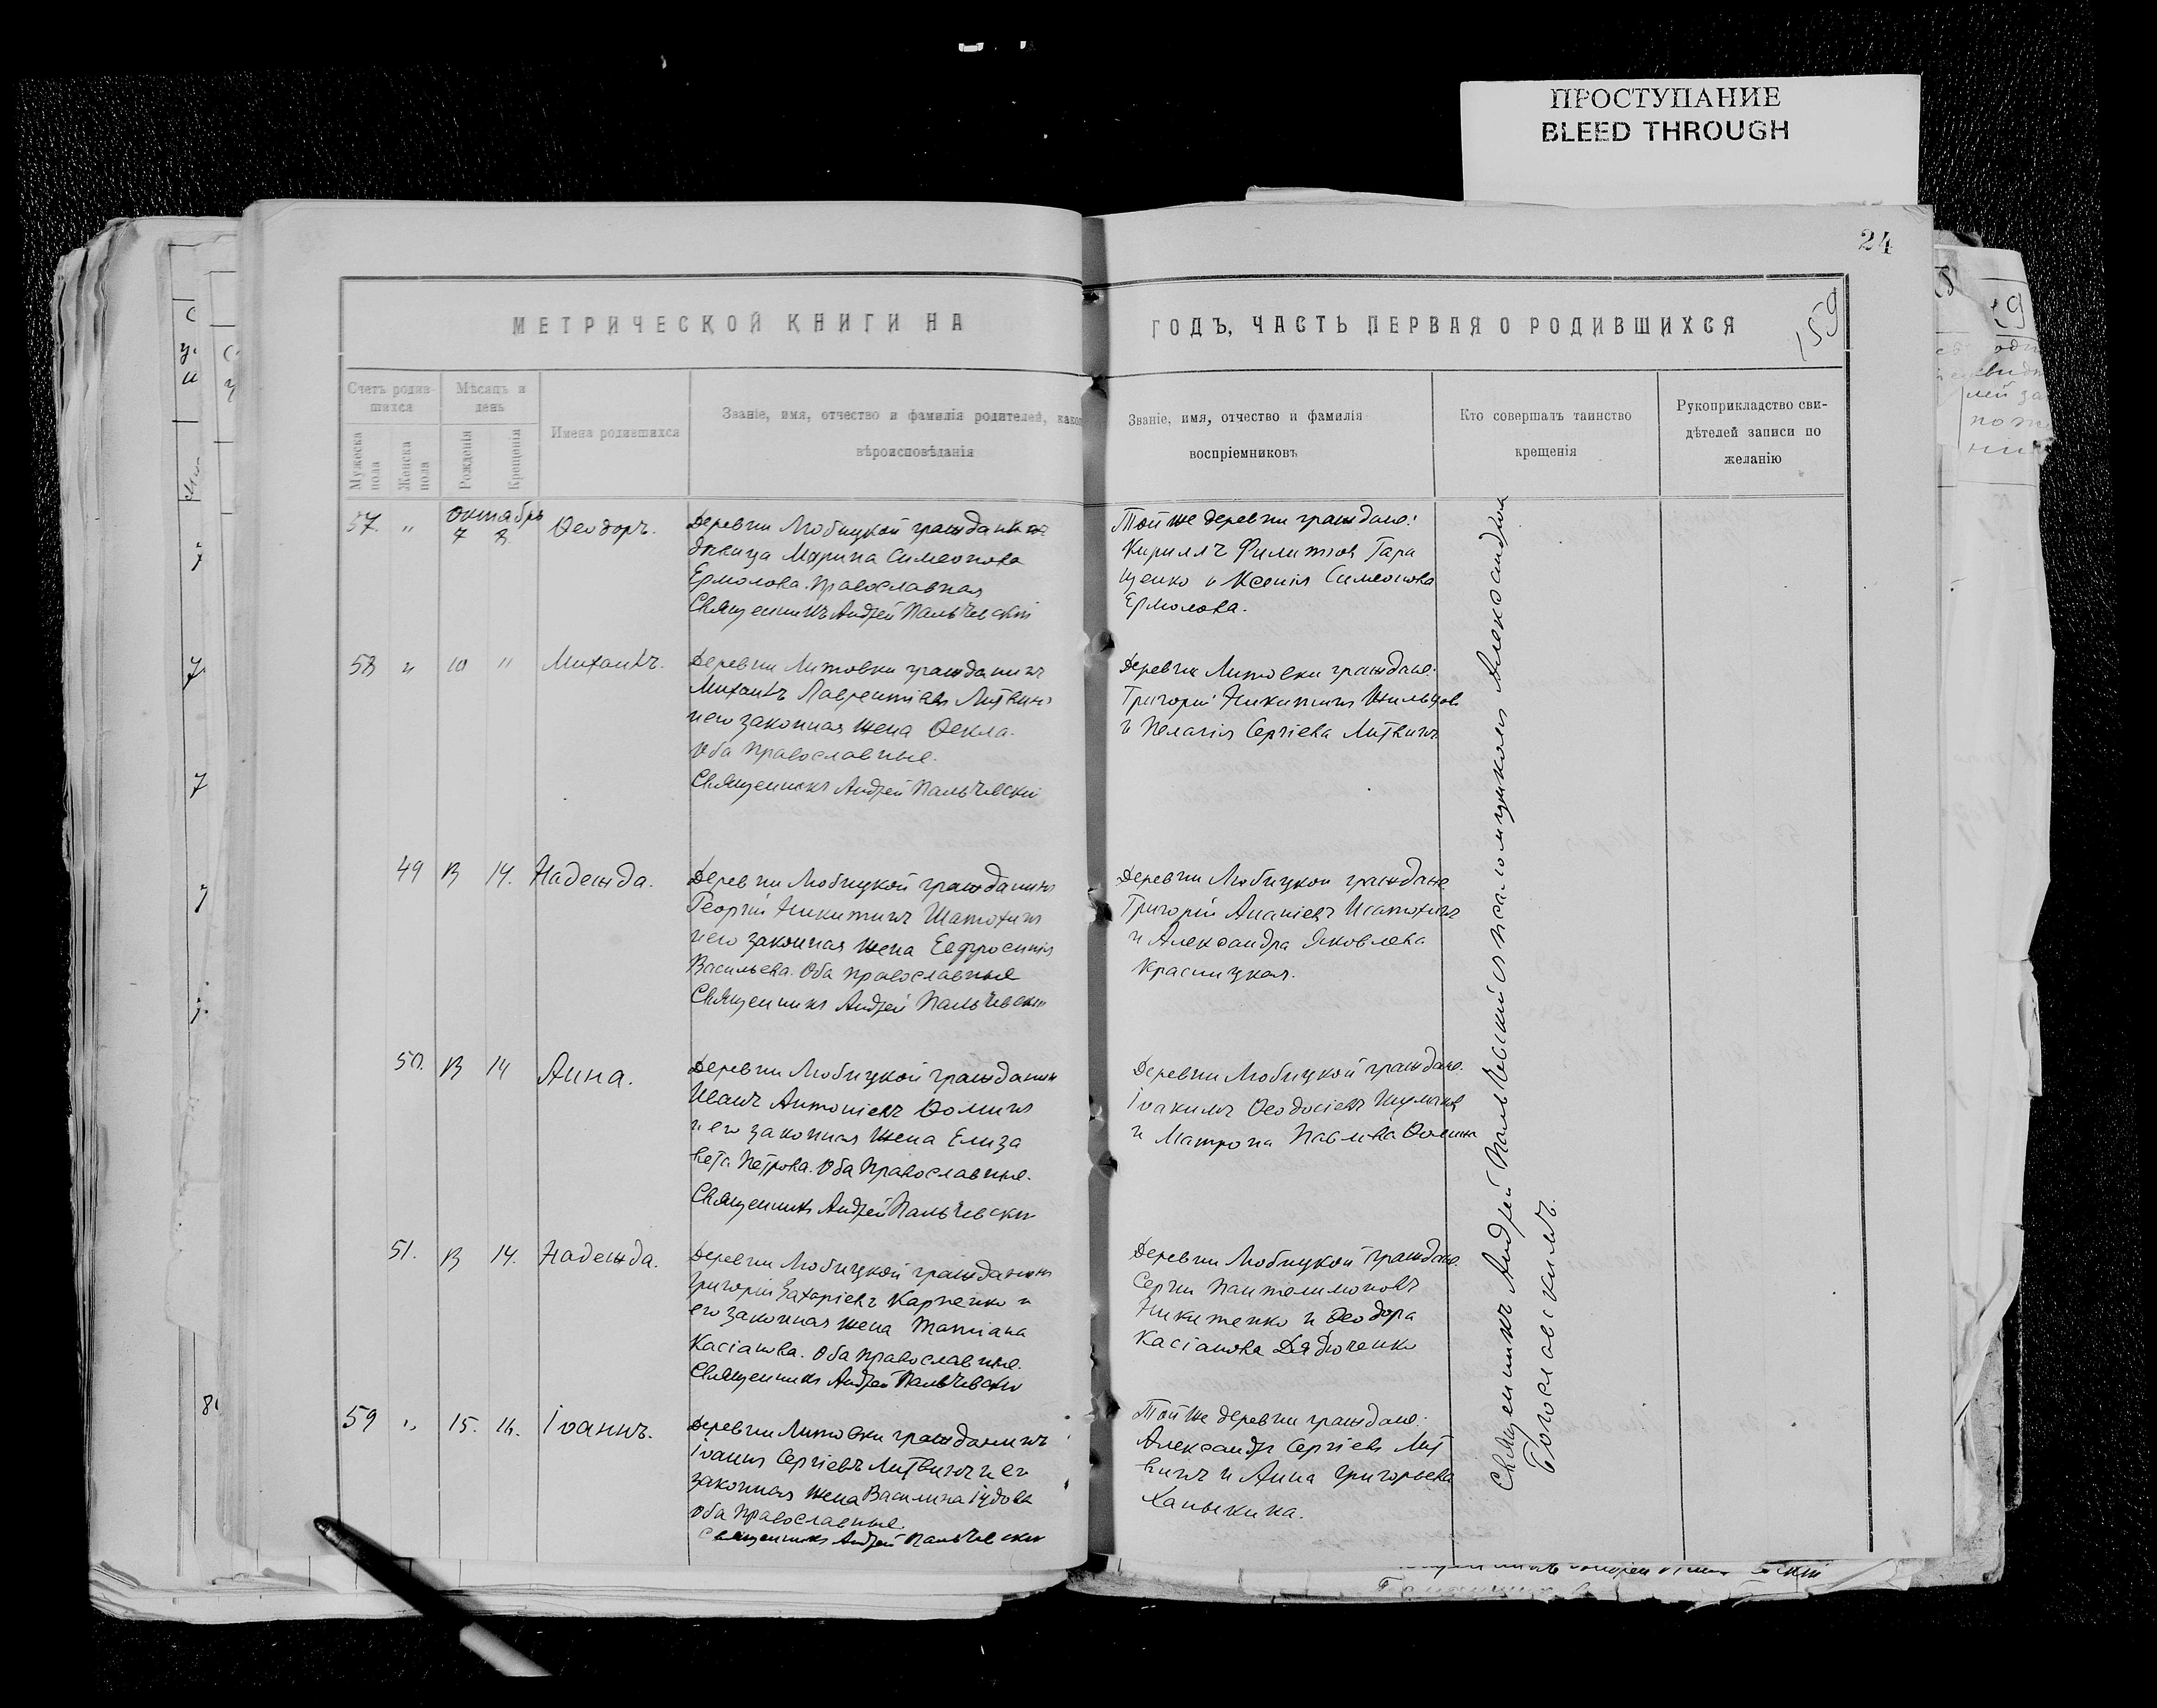 ПРОСТУПАНИЕ
BLEED THROUGH
24
159
МЕТРИЧЕСКОЙ КНИГИ НА
ГОДЪ, ЧАСТЬ ПЕРВАЯ О РОДИВШИХСЯ
Счетъ родив-
шихся
Мужеска пола
Женска пола
Мѣсяцъ и
день
Рожденія
Крещенія
Имена родившихся
Званіе, имя, отчество и фамилія родителей,
вѣроисповѣданія
Званіе, имя, отчество и фамилія
воспріемниковъ
Кто совершалъ таинство
крещенія
Рукоприкладство сви-
дѣтелей записи по
желанію
октябрь
57 " 7 8 Ѳеодоръ.
Деревни Любицкой
дѣвица Марина Симеонова
Ермолова. Православная
Священникъ Андрей Пальчевскій
Той же деревни граждане:
Кириллъ Филиппов Гара
щенко и Ксенія Симеонова
Ермолова.
58 " 10 " Михаилъ.
Деревни Литовки гражданинъ
Михаилъ Лаврентіевъ Литвинъ
и его законная жена Ѳекла.
Оба православные.
Священникъ Андрей Пальчевскій
Деревни Литовки граждане:
Григорій Никитинъ
и Пелагія Сергіева Литвинъ
49 13 14. Надежда.
Деревни Любицкой гражданинъ
Георгій Никитинъ Шатохинъ
и его законная жена Евфросинія
Васильева. Оба православные
Священникъ Андрей Пальчевскій
Деревни Любицкой граждане
Григорій Ананіевъ Шатохинъ
и Александра Яковлева
Красницкая.
50. 13 14 Анна.
Деревни Любицкой гражданинъ
Иванъ Антоніевъ Ѳоминъ
и его законная жена Елиза
вета Петрова. Оба православные.
Священникъ Андрей Пальчевскій
Деревни Любицкой граждане.
Іоакимъ Ѳеодосіевъ
и Матрона Павлова Ѳомина
51. 13 14. Надежда.
Деревни Любицкой гражданинъ
Григорій Захаріевъ Карпенко и
его законная жена Татіана
Касіанова. Оба православные.
Священникъ Андрей Пальчевскій
Деревни Любицкой граждане.
Сергій Пантелимоновъ
Никитенко и Ѳеодора
Касіанова Дядюченко
59 " 15. 16. Іоаннъ.
Деревни Литовки гражданинъ
Іоаннъ Сергіевъ Литвинъ и его
законная жена Василина Іудова
Оба православные.
Священникъ Андрей Пальчевскій
Той же деревни граждане:
Александръ Сергіевъ Лит
винъ и Анна Григорьева
Ханыкина.
Священникъ Андрей Пальчевскій съ псаломщикомъ Александромъ
Богославскимъ.